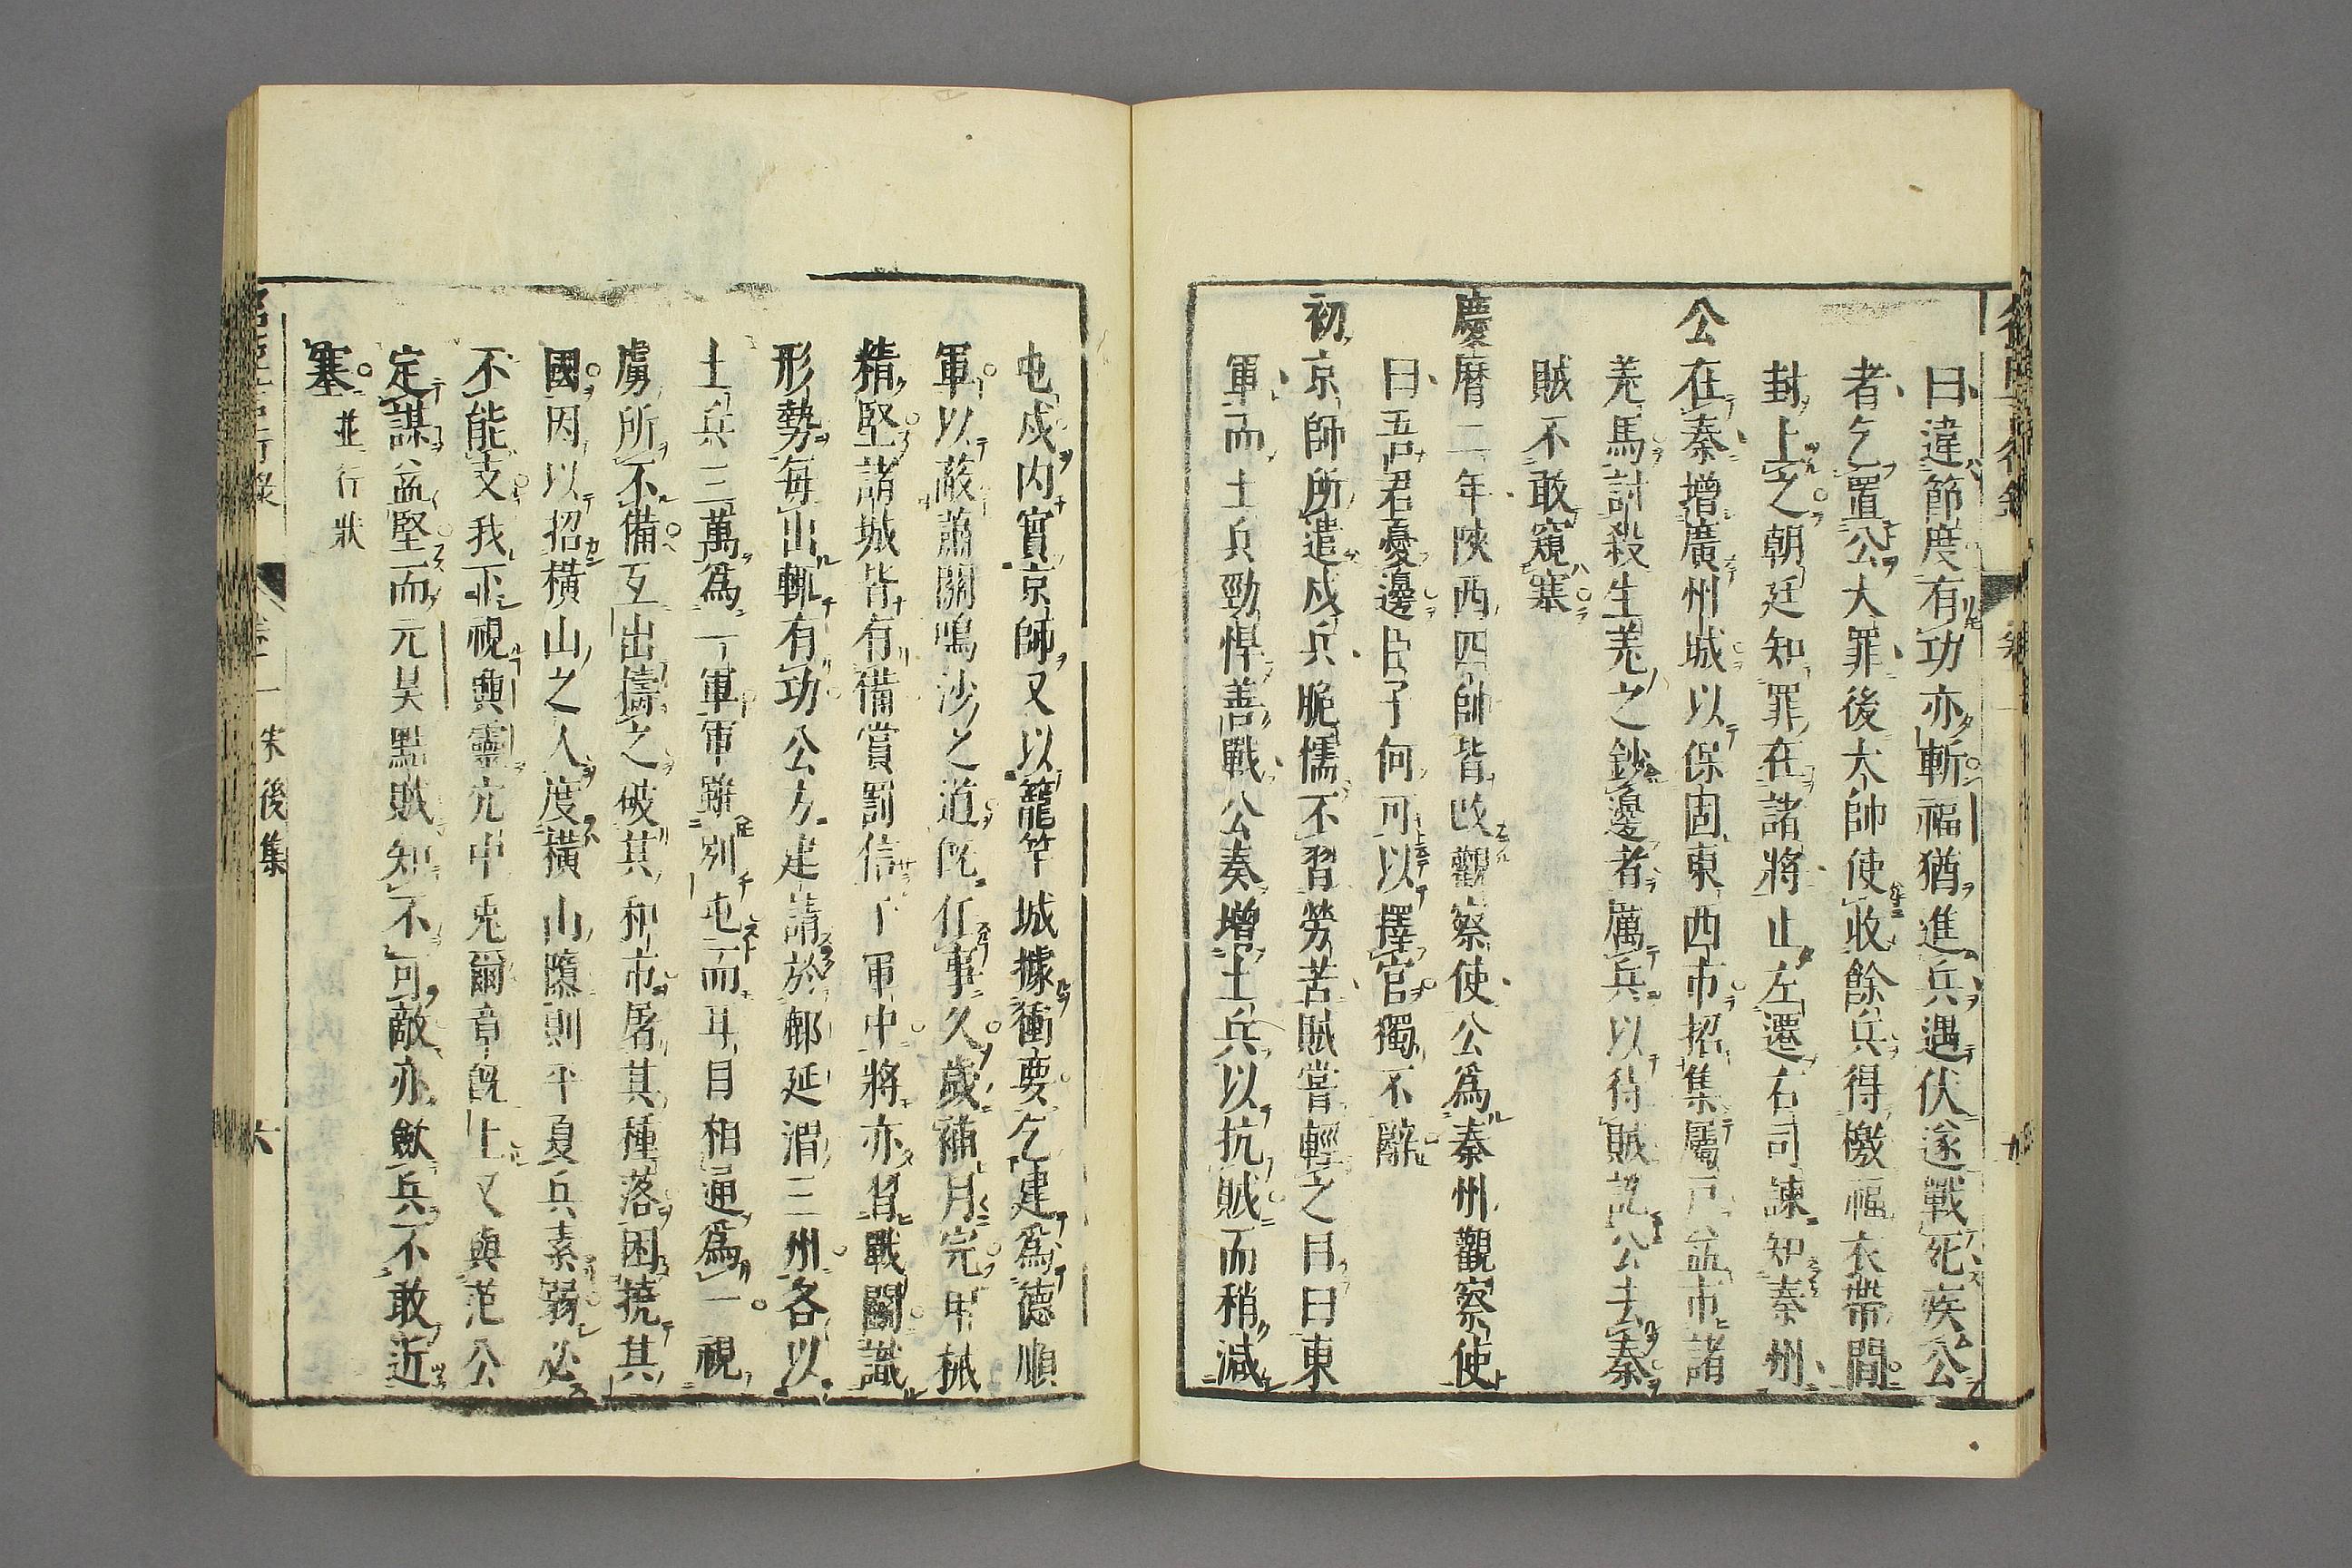 曰違節度有功亦斬福猶進兵遇伏遂戰死疾公
者乞置公大罪後大帥使收餘兵得檄福衣帶間
封上之朝廷知罪在諸將止左遷右司諫知秦州
公在秦增廣州城以保固東西市招集屬戶益市諸
羌馬討殺生羌之鈔邊者厲兵以待賊訖公去秦
賊不敢窺塞
慶曆二年陝西四帥皆改觀察使公爲秦州觀察使
曰吾君憂邊臣子何可以擇官獨不辭
初京師所遣戍兵脆懦不習勞苦賊嘗輕之目曰東
軍而土兵勁悍善戰公奏增土兵以抗賊而稍減
屯戍內實京師又以籠竿城據衝要乞建爲德順
軍以蔽蕭關鳴沙之道既任事久歲補月完甲械
精堅諸城皆有備賞罰信于軍中將亦習戰鬪識
形勢每出輒有功公方建請於鄜延渭三州各以
土兵三萬爲一軍軍雖別屯而耳目相通爲一視
虜所不備互出擣之破其和市屠其種落困撓其
國因以招橫山之人度橫山隳則平夏兵素弱必
不能支我下視興靈亢中兎爾章既上又與范公
定謀益堅而元昊黠賊知不可敵亦斂兵不敢近
塞並行狀
宋後集
六